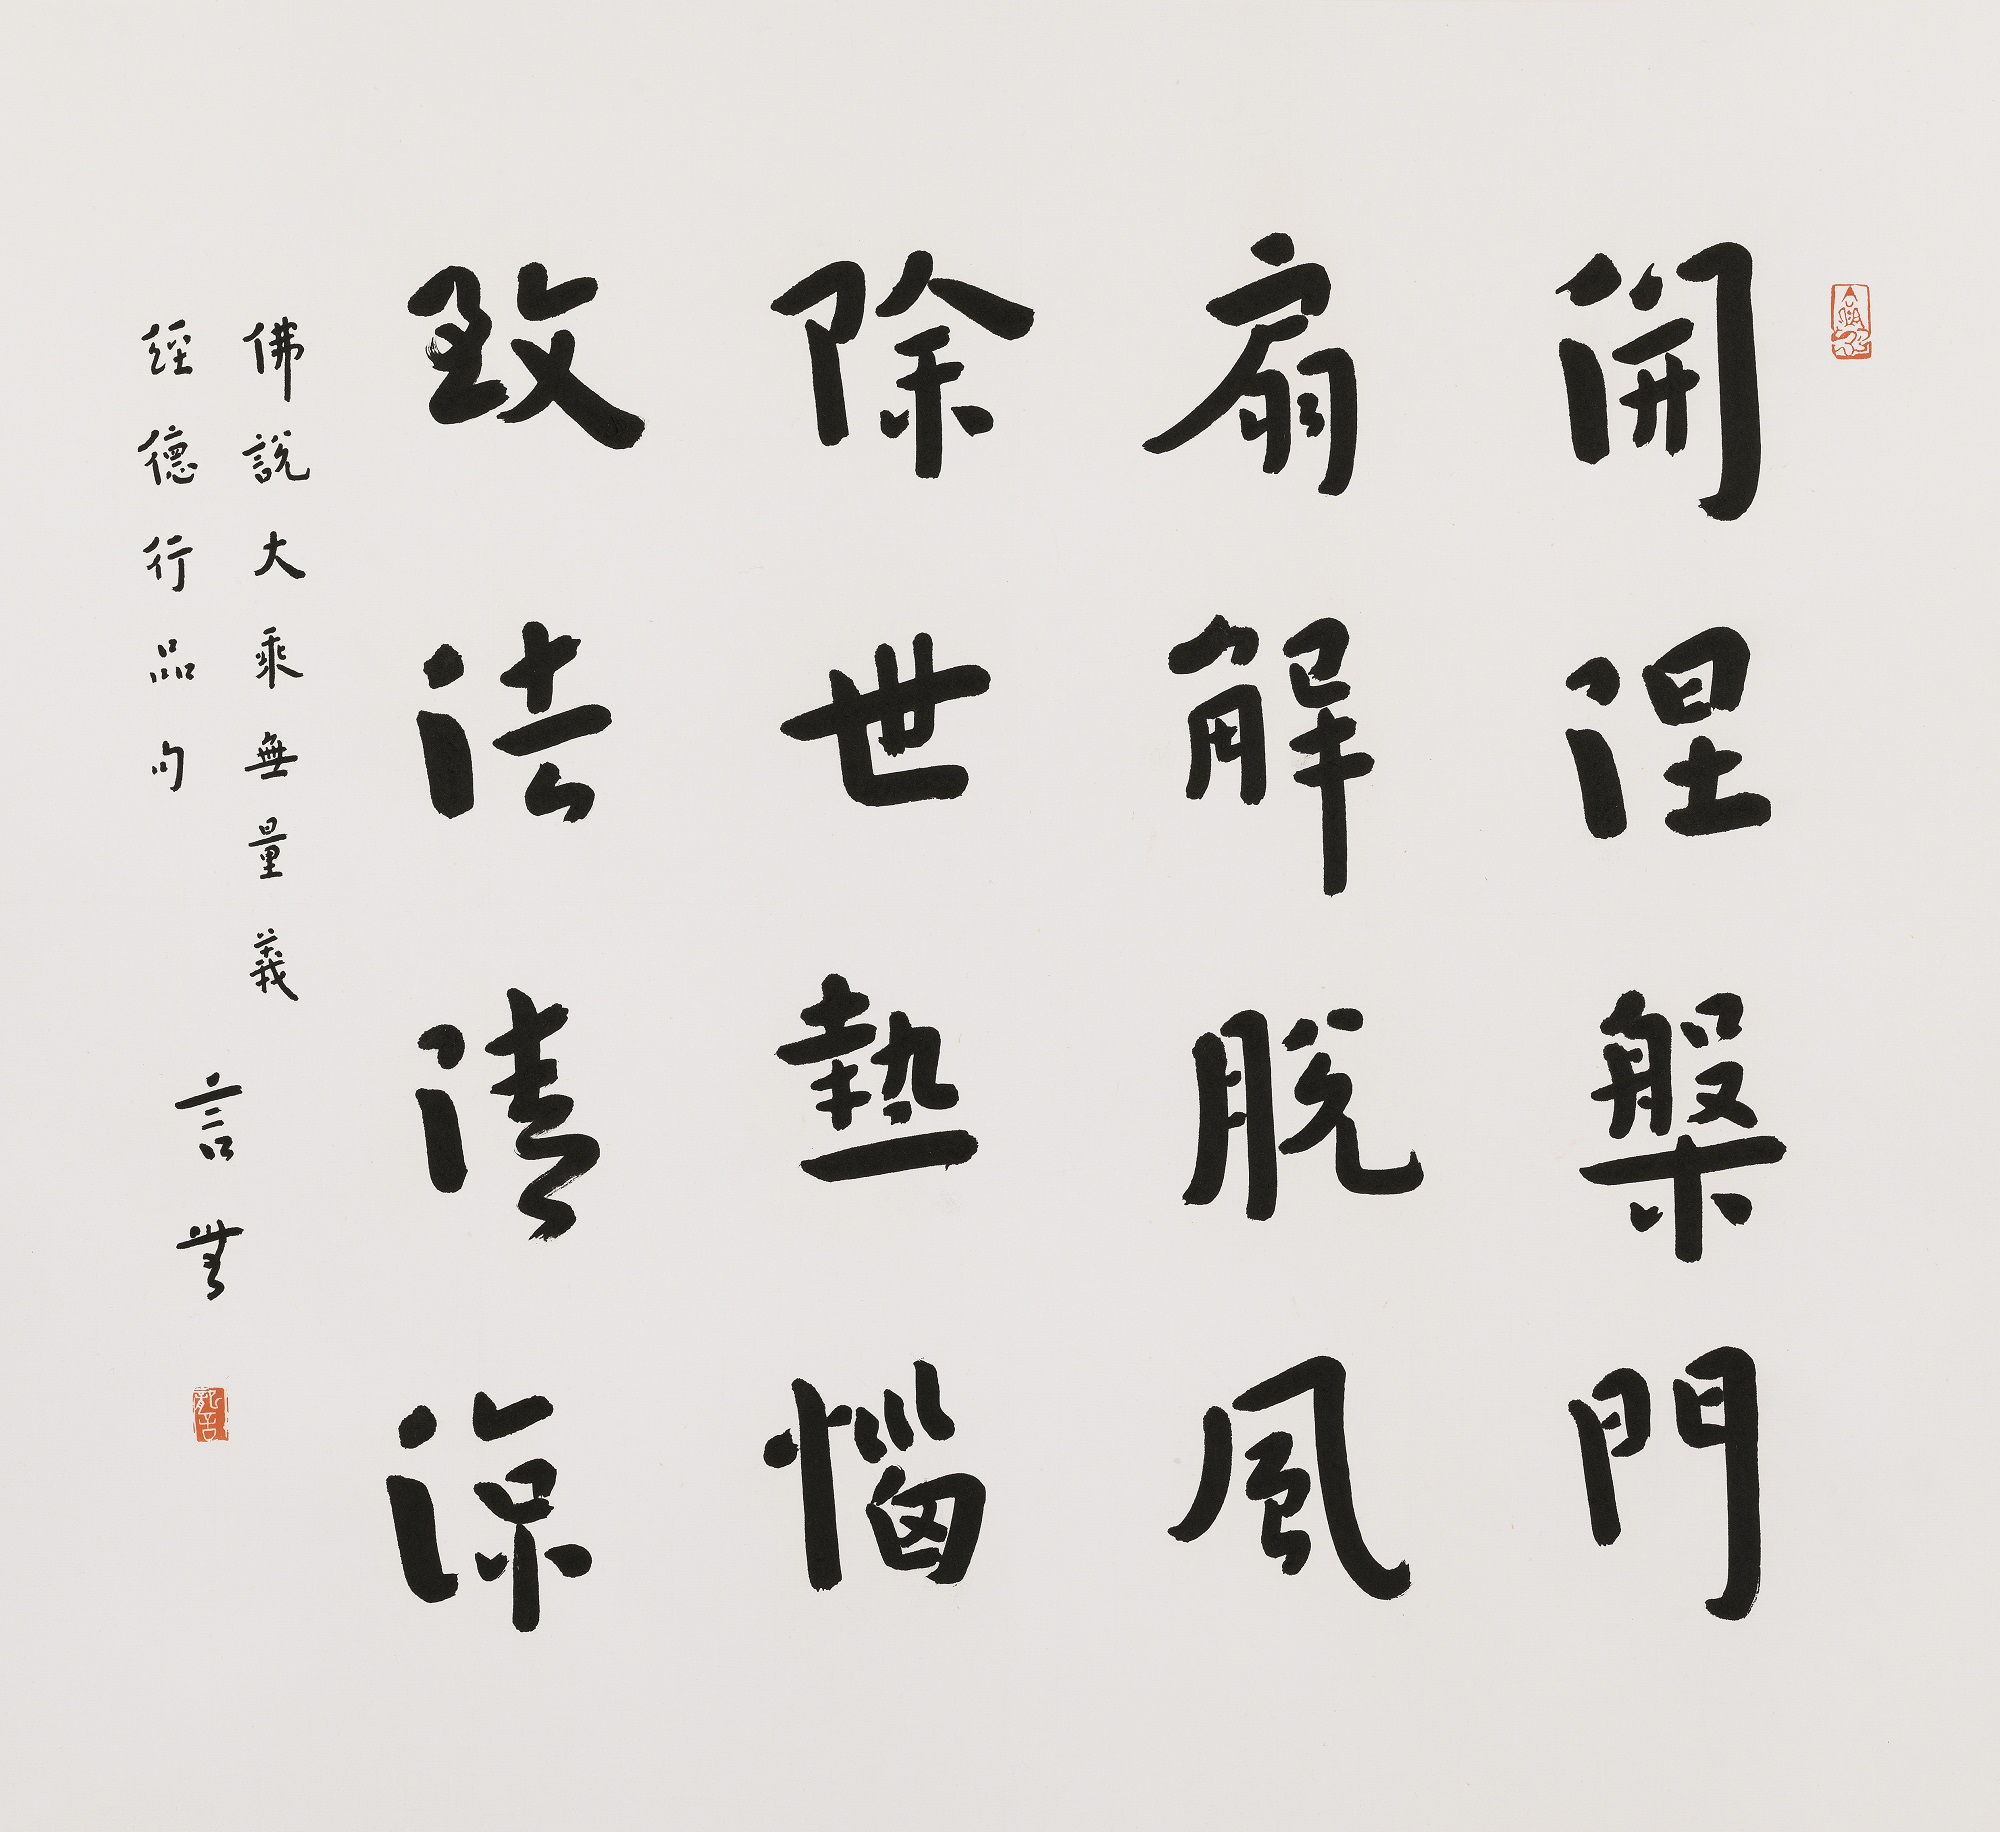 開涅槃門
扇解脫風
除世熱惱
致法清涼
佛說大乘無量義
經德行品句
言無